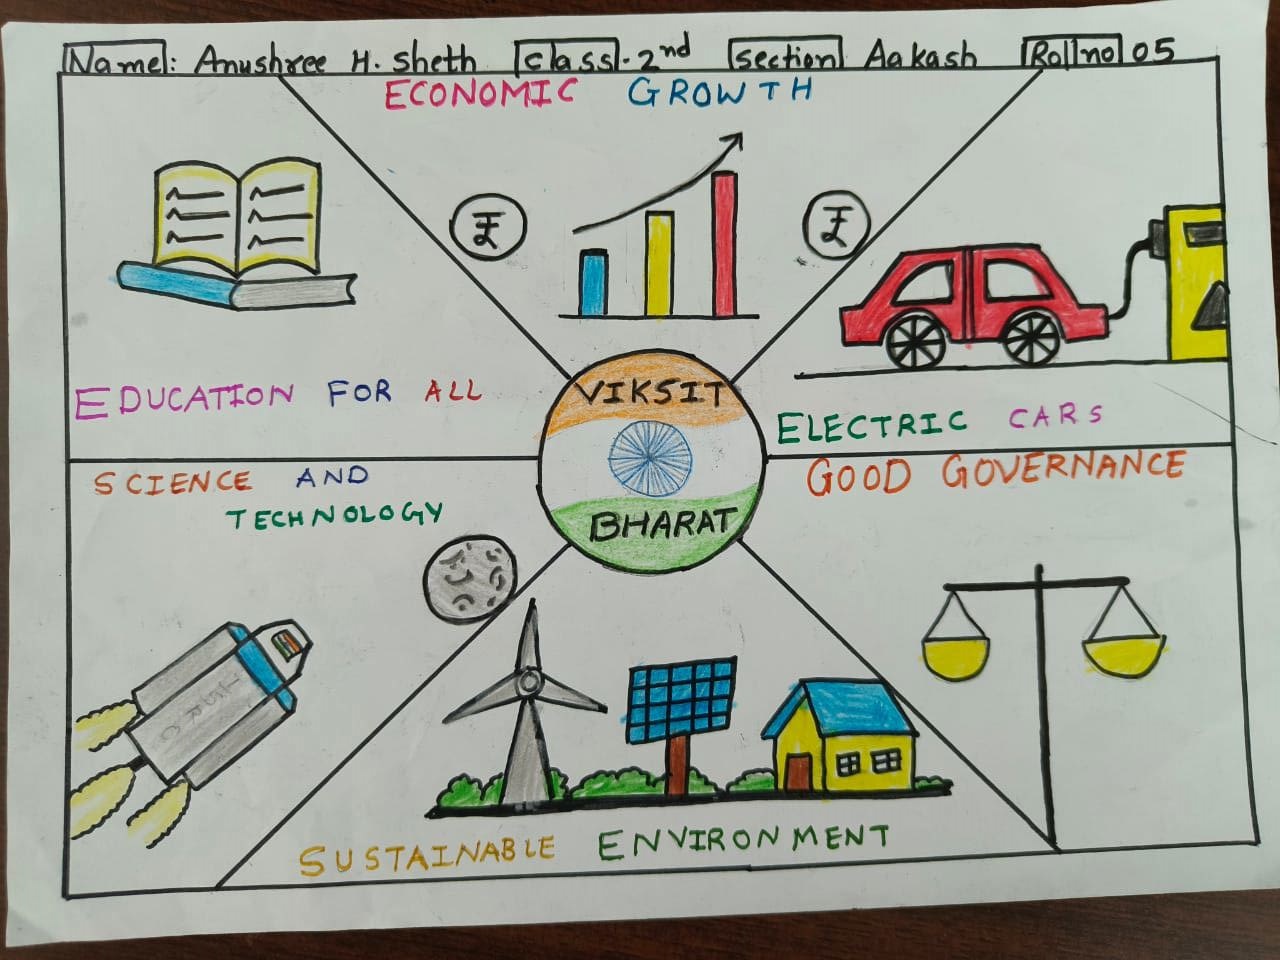 Name: Anushree H. Sheth class. 2nd Section Aakash Roll no 05
ECONOMIC GROWTH
₹ ₹
EDUCATION FOR ALL
ELECTRIC CARS
VIKSIT
BHARAT
SCIENCE AND
TECHNOLOGY
GOOD GOVERNANCE
ISRO
SUSTAINABLE ENVIRONMENT